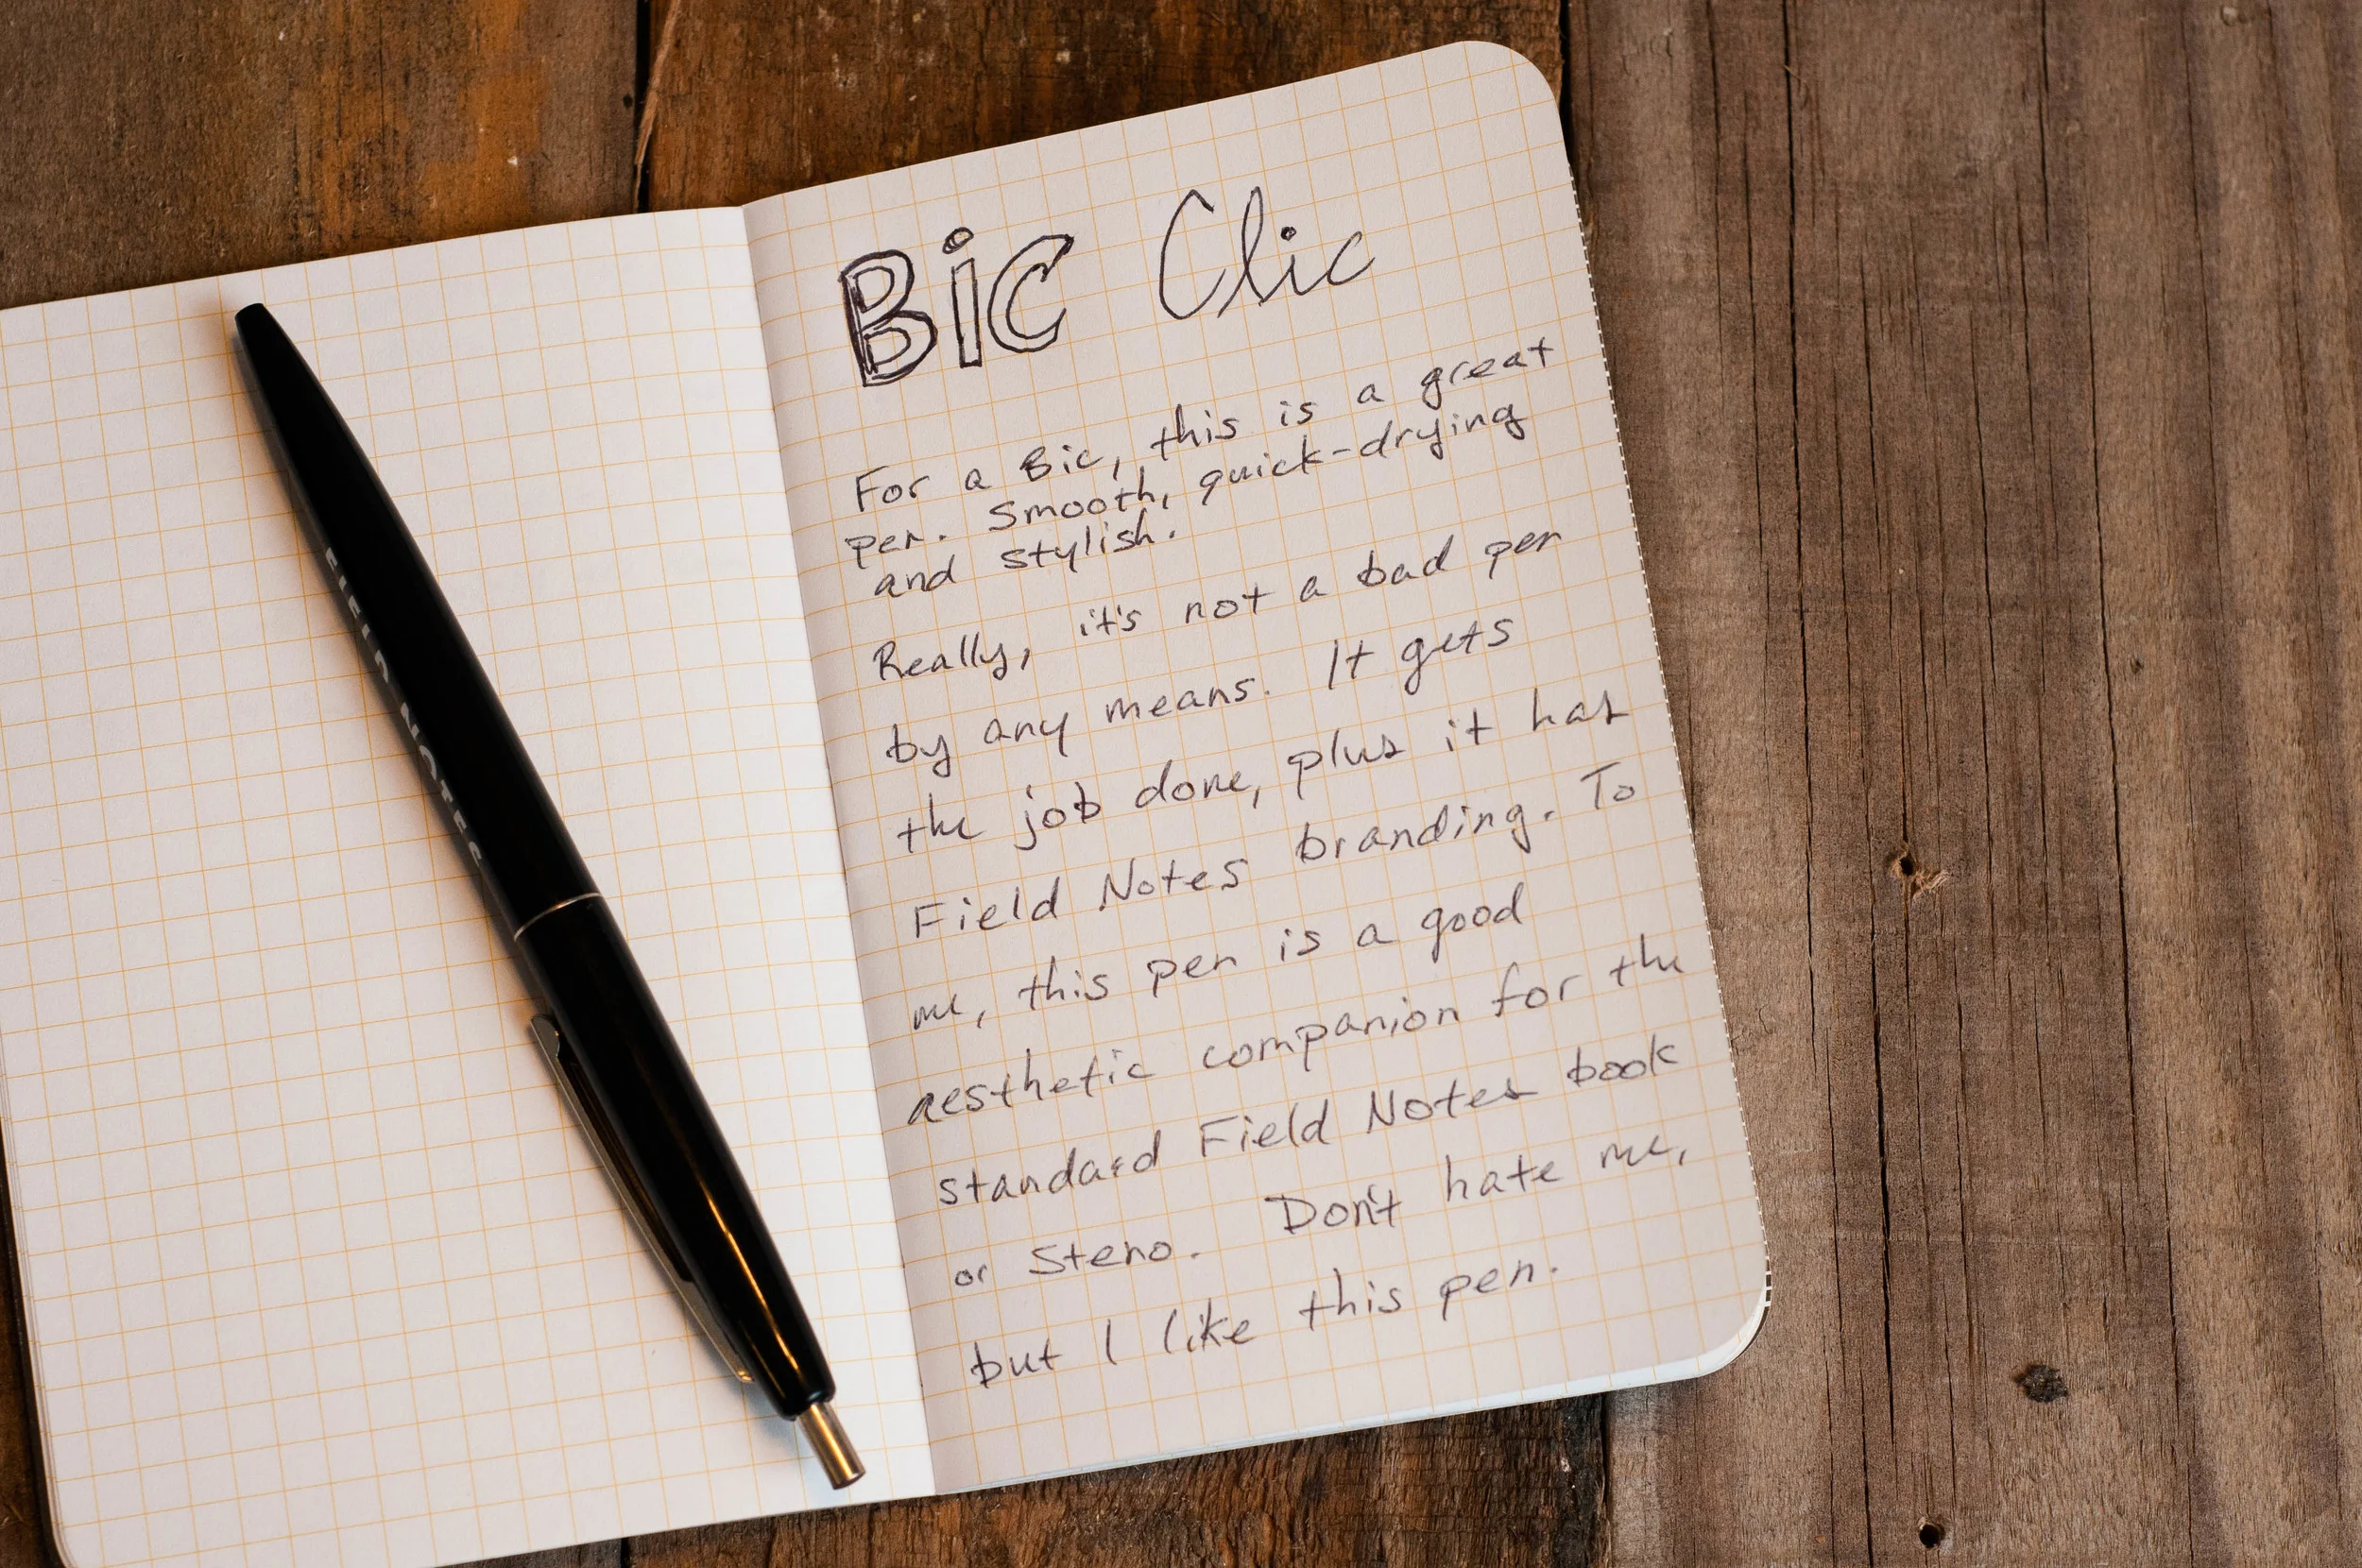 FIELD NOTES
Bic Clic
For a Bic, this is a great
pen. Smooth, quick-drying
and stylish.
Really, it's not a bad pen
by any means. It gets
the job done, plus it has
Field Notes branding. To
me, this pen is a good
aesthetic companion for the
standard Field Notes book
or Steno. Don't hate me,
but I like this pen.